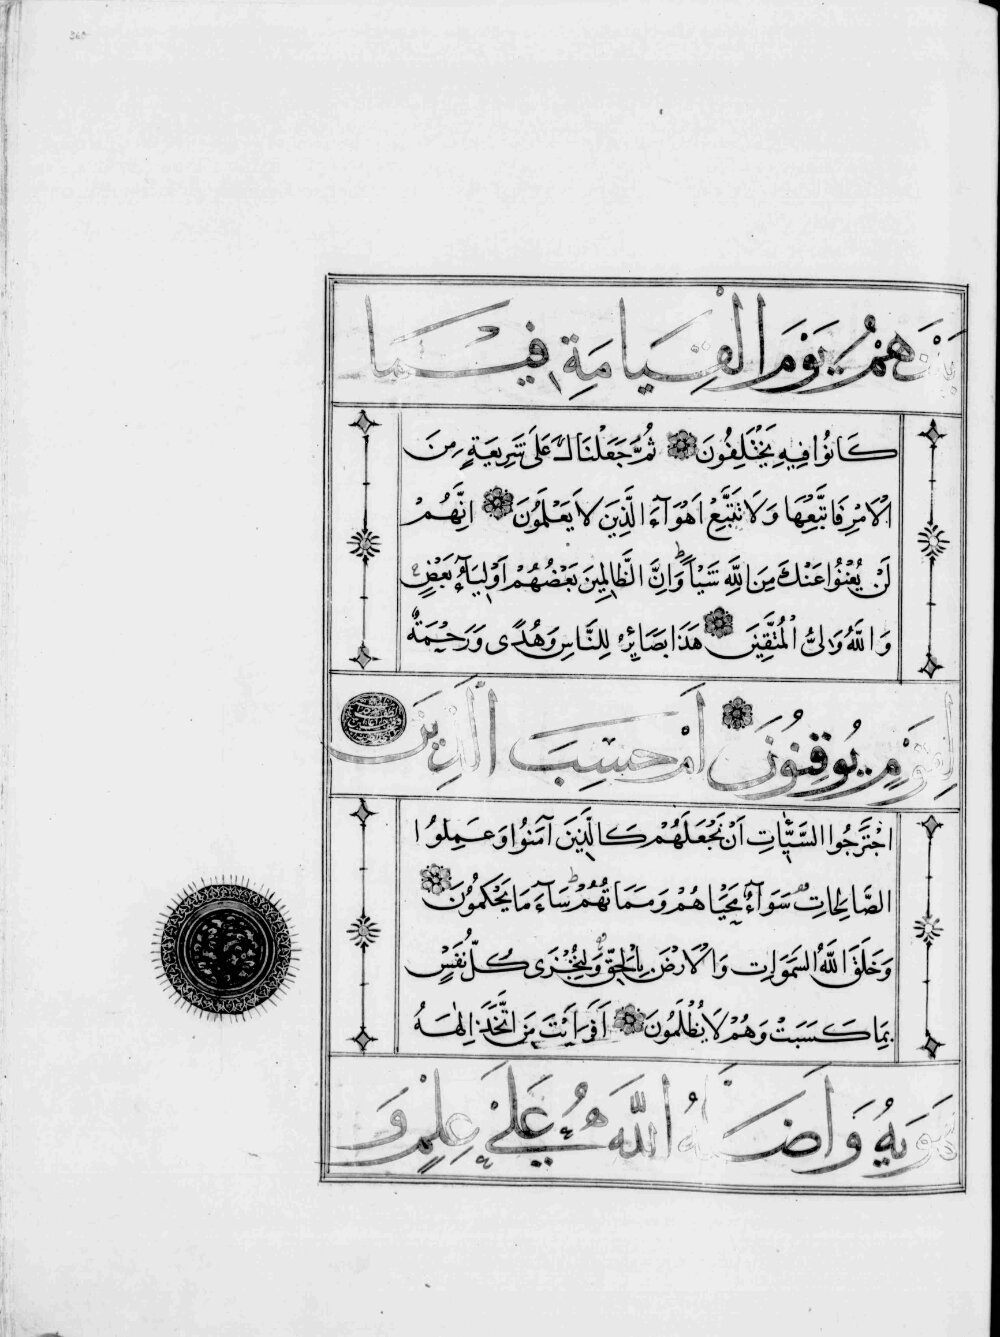 بَيْنَهُمْ يَوْمَ الْقِيَامَةِ فِيمَا
كَانُوا فِيهِ يَخْتَلِفُونَ ثُمَّ جَعَلْنَاكَ عَلَى شَرِيعَةٍ مِنَ
الْاَمْرِ فَاتَّبِعْهَا وَلَا تَتَّبِعْ اَهْوَآءَ الَّذِينَ لَا يَعْلَمُونَ اِنَّهُمْ
لَنْ يُغْنُوا عَنْكَ مِنَ اللَّهِ شَيْئاً وَاِنَّ الظَّالِمِينَ بَعْضُهُمْ اَوْلِيَآءُ بَعْضٍ
وَاللَّهُ وَلِىُّ الْمُتَّقِينَ هَذَا بَصَآئِرُ لِلنَّاسِ وَهُدًى وَرَحْمَةٌ
لِقَوْمٍ يُوقِنُونَ اَمْ حَسِبَ الَّذِينَ
اجْتَرَحُوا السَّيِّئَاتِ اَنْ نَجْعَلَهُمْ كَالَّذِينَ آمَنُوا وَعَمِلُوا
الصَّالِحَاتِ سَوَآءً مَحْيَاهُمْ وَمَمَاتُهُمْ سَآءَ مَا يَحْكُمُونَ
وَخَلَقَ اللَّهُ السَّمَوَاتِ وَالْاَرْضَ بِالْحَقِّ وَلِتُجْزَى كُلُّ نَفْسٍ
بِمَا كَسَبَتْ وَهُمْ لَا يُظْلَمُونَ اَفَرَاَيْتَ مَنِ اتَّخَذَ اِلَهَهُ
هَوَيهُ وَاَضَلَّهُ اللَّهُ عَلَى عِلْمٍ وَ